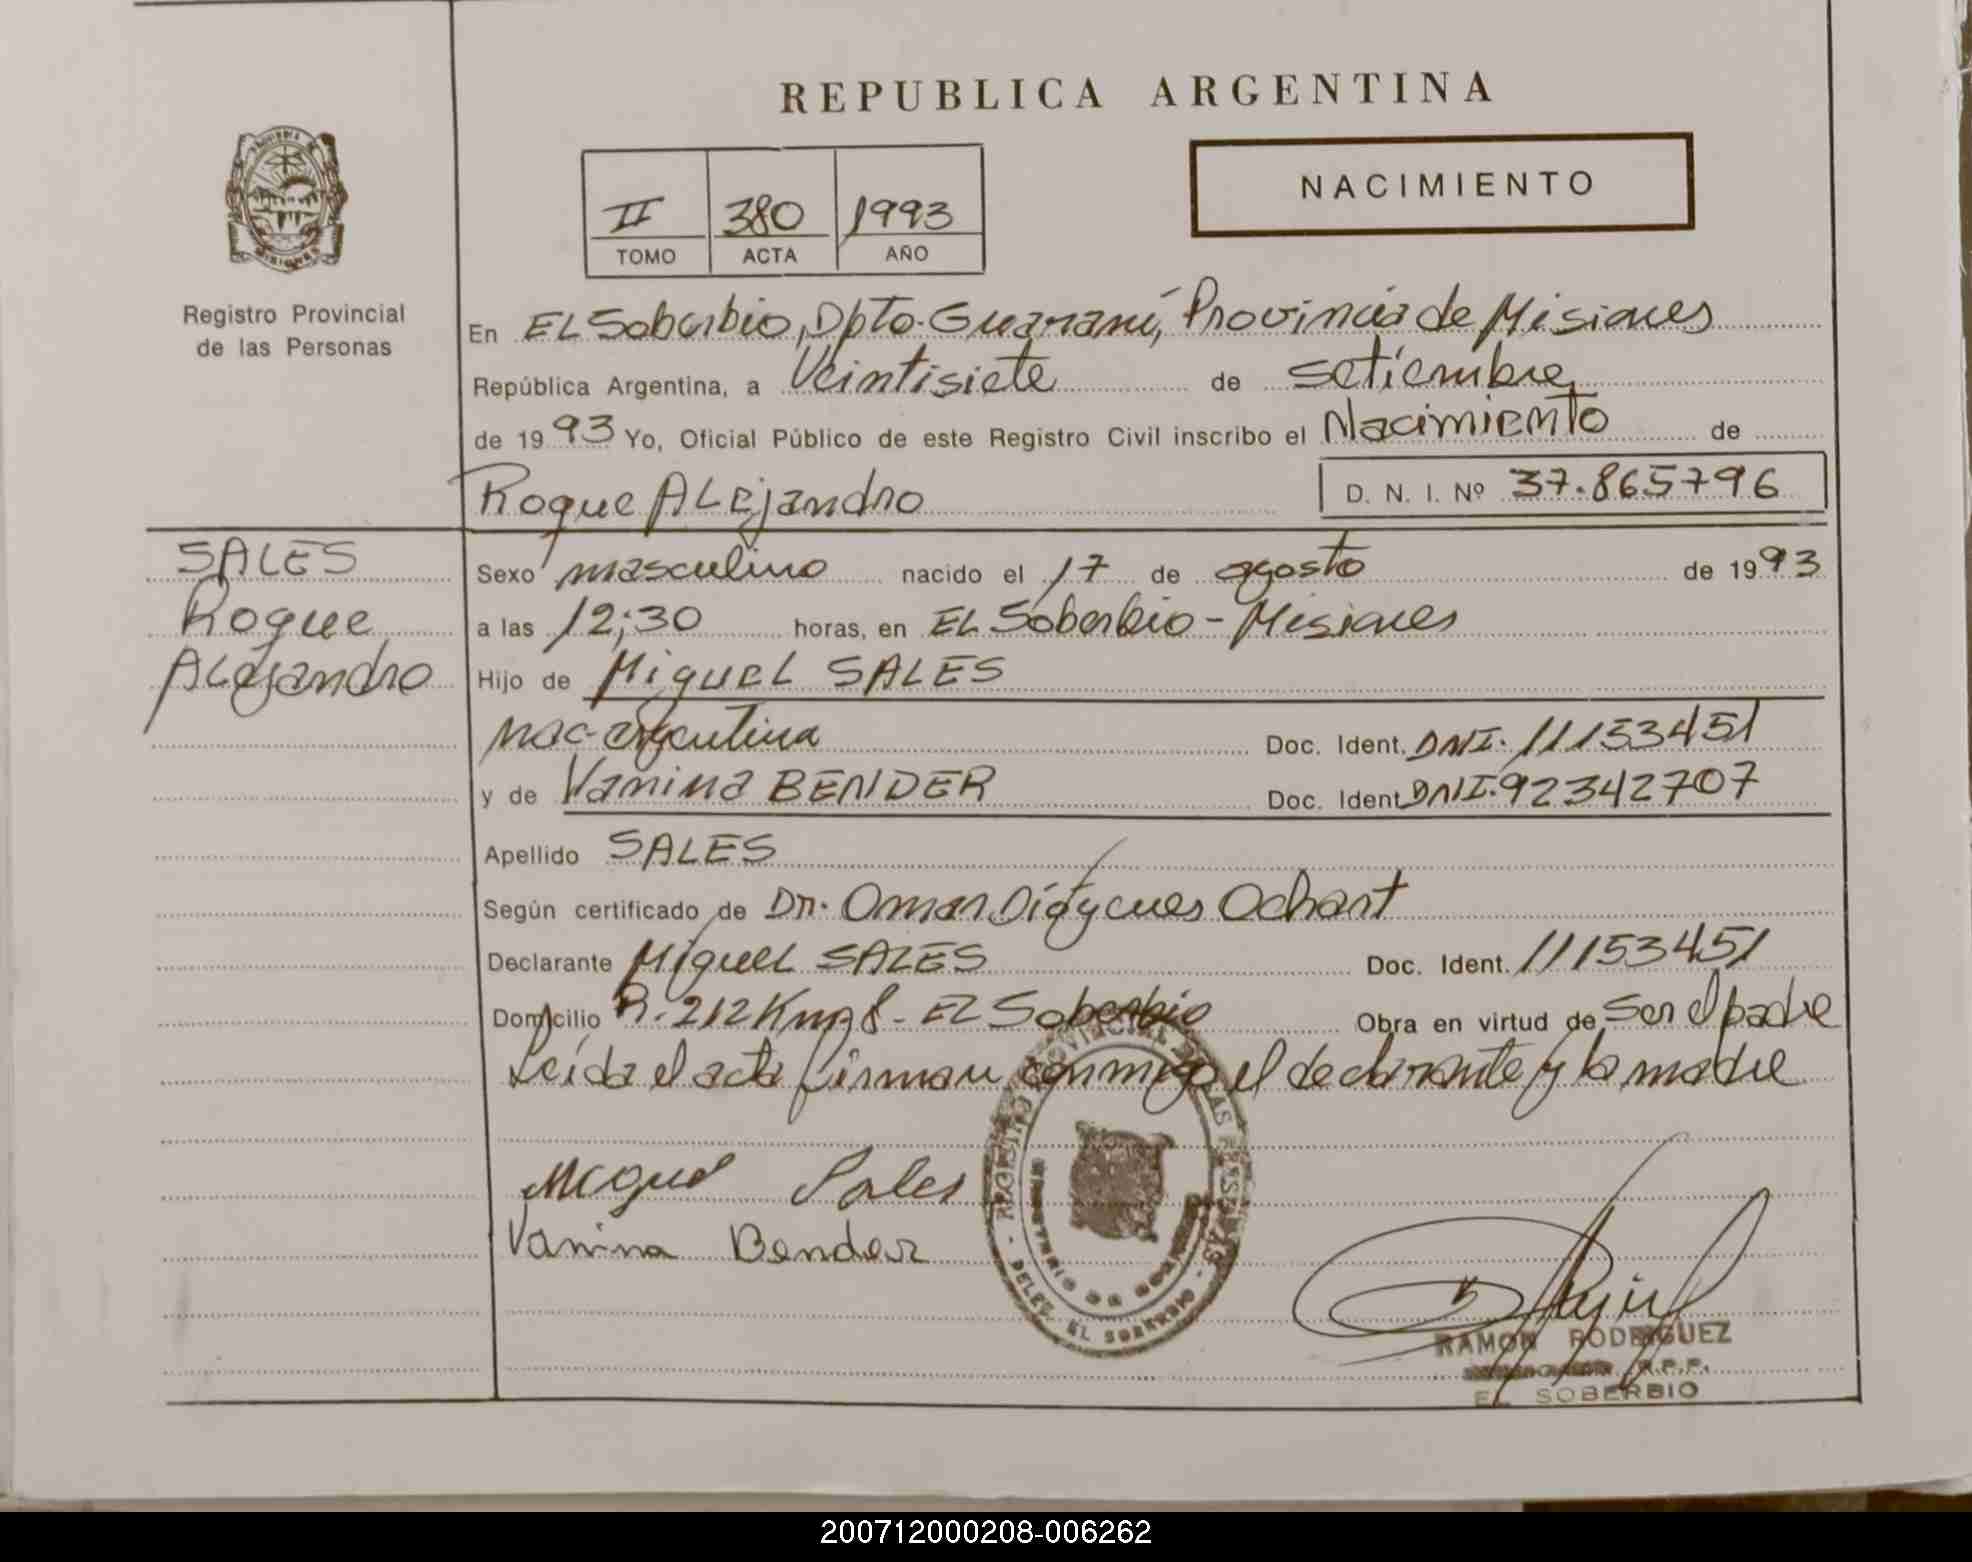 REPUBLICA ARGENTINA
NACIMIENTO
II 380 1993
TOMO ACTA AÑO
MISIONES
Registro Provincial
de las Personas
En EL Soberbio, Dpto. Guaraní, Provincia de Misiones
República Argentina, a Veintisiete de setiembre
de 1993 Yo, Oficial Público de este Registro Civil inscribo el Nacimiento de
Roque ALejandro D. N. I. Nº 37.865796
SALES
Roque
ALejandro
Sexo masculino nacido el 17 de agosto de 1993
a las 12;30 horas, en EL Soberbio - Misiones
Hijo de MiguEL SALES
nac-argentina Doc. Ident. DNI. 11153451
y de Vanina BENDER Doc. Ident DNI. 92342707
Apellido SALES
Según certificado de Dr. Omar Ochart
Declarante MiguEL SALES Doc. Ident. 11153451
Domicilio R. 212 Km 8 - EL Soberbio Obra en virtud de Ser el padre
Leída el acta firman conmigo el declarante y la madre
Miguel Sales
Vanina Bender
REGISTRO PROVINCIAL DE LAS PERSONAS
DELEG. EL SOBERBIO
RAMON RODRIGUEZ
R.P.P.
EL SOBERBIO
200712000208-006262